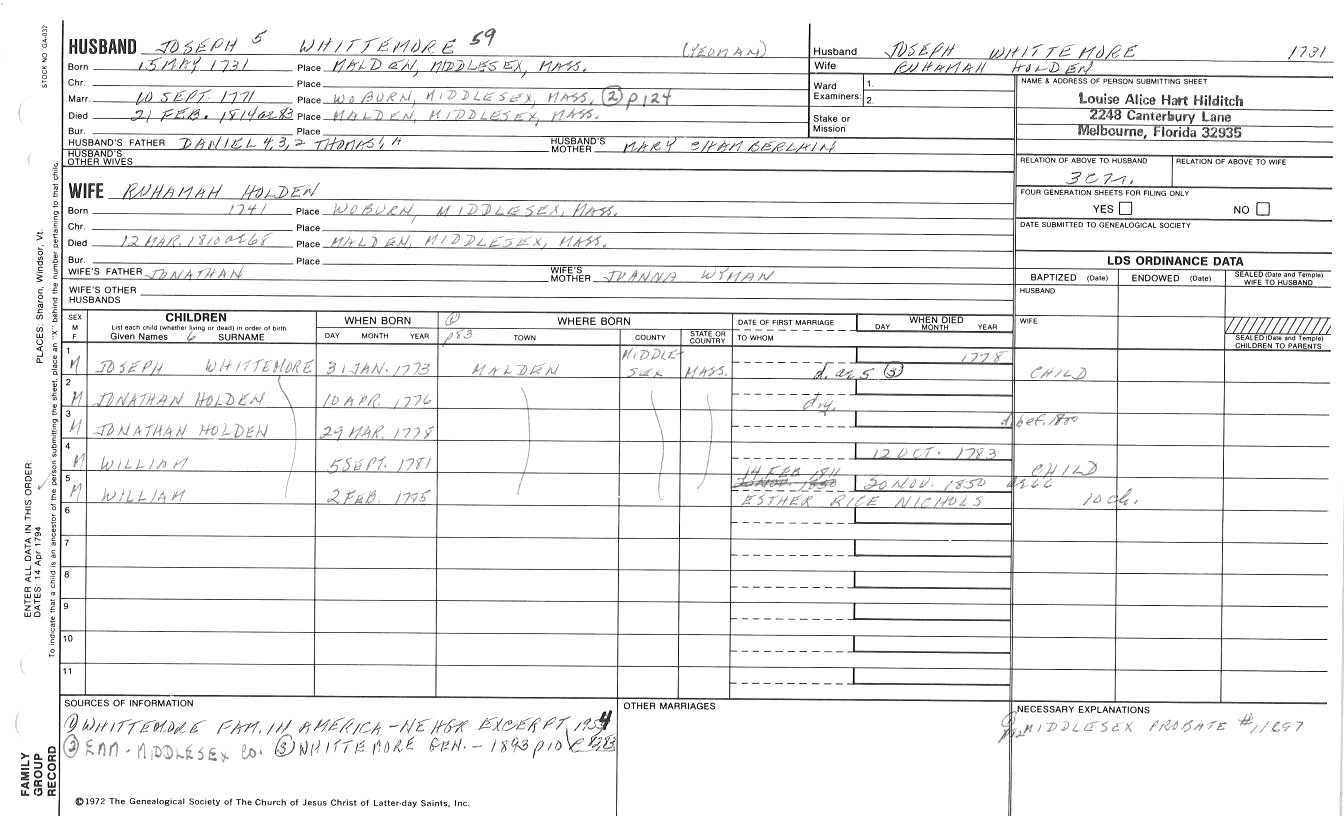 STOCK NO. GA-032
HUSBAND JOSEPH 5 WHITTEMORE 59 (YEOMAN)
Born 15 MAY 1731 Place MALDEN, MIDDLESEX, MASS.
Chr. Place
Marr. 10 SEPT. 1771 Place WOBURN, MIDDLESEX, MASS. (2) p124
Died 21 FEB. 1814 or 83 Place MALDEN, MIDDLESEX, MASS.
Bur. Place
HUSBAND'S FATHER DANIEL 4, 3, 2 THOMAS 1, A HUSBAND'S MOTHER MARY CHAMBERLAIN
HUSBAND'S OTHER WIVES
WIFE RUHAMAH HOLDEN
Born 1741 Place WOBURN, MIDDLESEX, MASS.
Chr. Place
Died 12 MAR. 1810 at 68 Place MALDEN, MIDDLESEX, MASS.
Bur. Place
WIFE'S FATHER JONATHAN WIFE'S MOTHER JOANNA WYMAN
WIFE'S OTHER HUSBANDS
Husband JOSEPH WHITTEMORE 1731
Wife RUHAMAH HOLDEN
Ward Examiners: 1. 2.
Stake or Mission
NAME & ADDRESS OF PERSON SUBMITTING SHEET
Louise Alice Hart Hilditch
2248 Canterbury Lane
Melbourne, Florida 32935
RELATION OF ABOVE TO HUSBAND RELATION OF ABOVE TO WIFE
FOUR GENERATION SHEETS FOR FILING ONLY
YES NO
DATE SUBMITTED TO GENEALOGICAL SOCIETY
LDS ORDINANCE DATA
BAPTIZED (Date) ENDOWED (Date) SEALED (Date and Temple) WIFE TO HUSBAND
HUSBAND
WIFE
SEALED (Date and Temple) CHILDREN TO PARENTS
SEX M F
CHILDREN
List each child (whether living or dead) in order of birth
Given Names 6 SURNAME
WHEN BORN
DAY MONTH YEAR
p83 WHERE BORN
TOWN COUNTY STATE OR COUNTRY
DATE OF FIRST MARRIAGE
TO WHOM
WHEN DIED
DAY MONTH YEAR
1 M JOSEPH WHITTEMORE 31 JAN. 1773 MALDEN MIDDLESEX MASS. 1778 d. ae 5 (3) CHILD
2 M JONATHAN HOLDEN 10 APR. 1776 d.y.
3 M JONATHAN HOLDEN 29 MAR. 1778 d. bef. 1800
4 M WILLIAM 5 SEPT. 1781 12 OCT. 1783 CHILD
5 M WILLIAM 2 FEB. 1785 14 FEB 1811 20 NOV. 1850 20 NOV. 1850
ESTHER RICE NICHOLS 10 ch.
6
7
8
9
10
11
SOURCES OF INFORMATION
(1) WHITTEMORE FAM. IN AMERICA - NEHGR EXCERPT, 1954
(2) EAA - MIDDLESEX CO. (3) WHITTEMORE GEN. - 1893 p10
OTHER MARRIAGES
NECESSARY EXPLANATIONS
MIDDLESEX PROBATE #
©1972 The Genealogical Society of The Church of Jesus Christ of Latter-day Saints, Inc.
FAMILY GROUP RECORD
ENTER ALL DATA IN THIS ORDER:
DATES: 14 Apr 1794
PLACES: Sharon, Windsor, Vt.
To indicate that a child is an ancestor of the person submitting the sheet, place an "X" behind the number pertaining to that child.